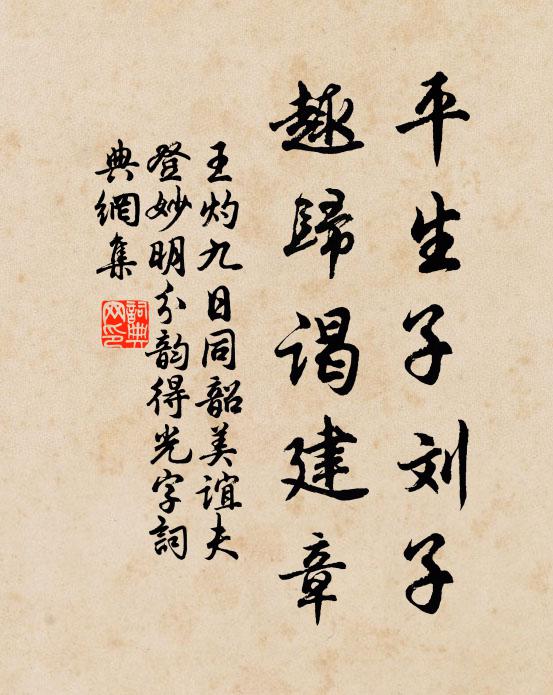 平生子刘子
趣歸谒建章
王灼九日同韶美誼夫
登妙明分韵得光字詞
典網集
詞典网印